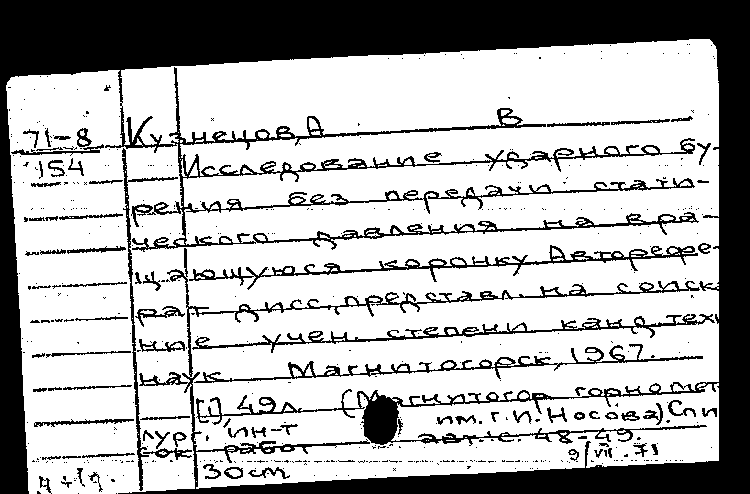 71-8 Кузнецов, А В
154 Исследование ударного бу-
рения без передачи стати-
ческого давления на вра-
щающуюся коронку. Авторефе-
рат дисс., представл. на соиск
ние учен. степени канд. техн
наук. Магнитогорск, 1967.
[1], 49л. (Магнитогор горномет
лург. ин-т им. Г. И. Носова). Спи
сок работ авт.: с. 48-49.
9/VII.71
30см